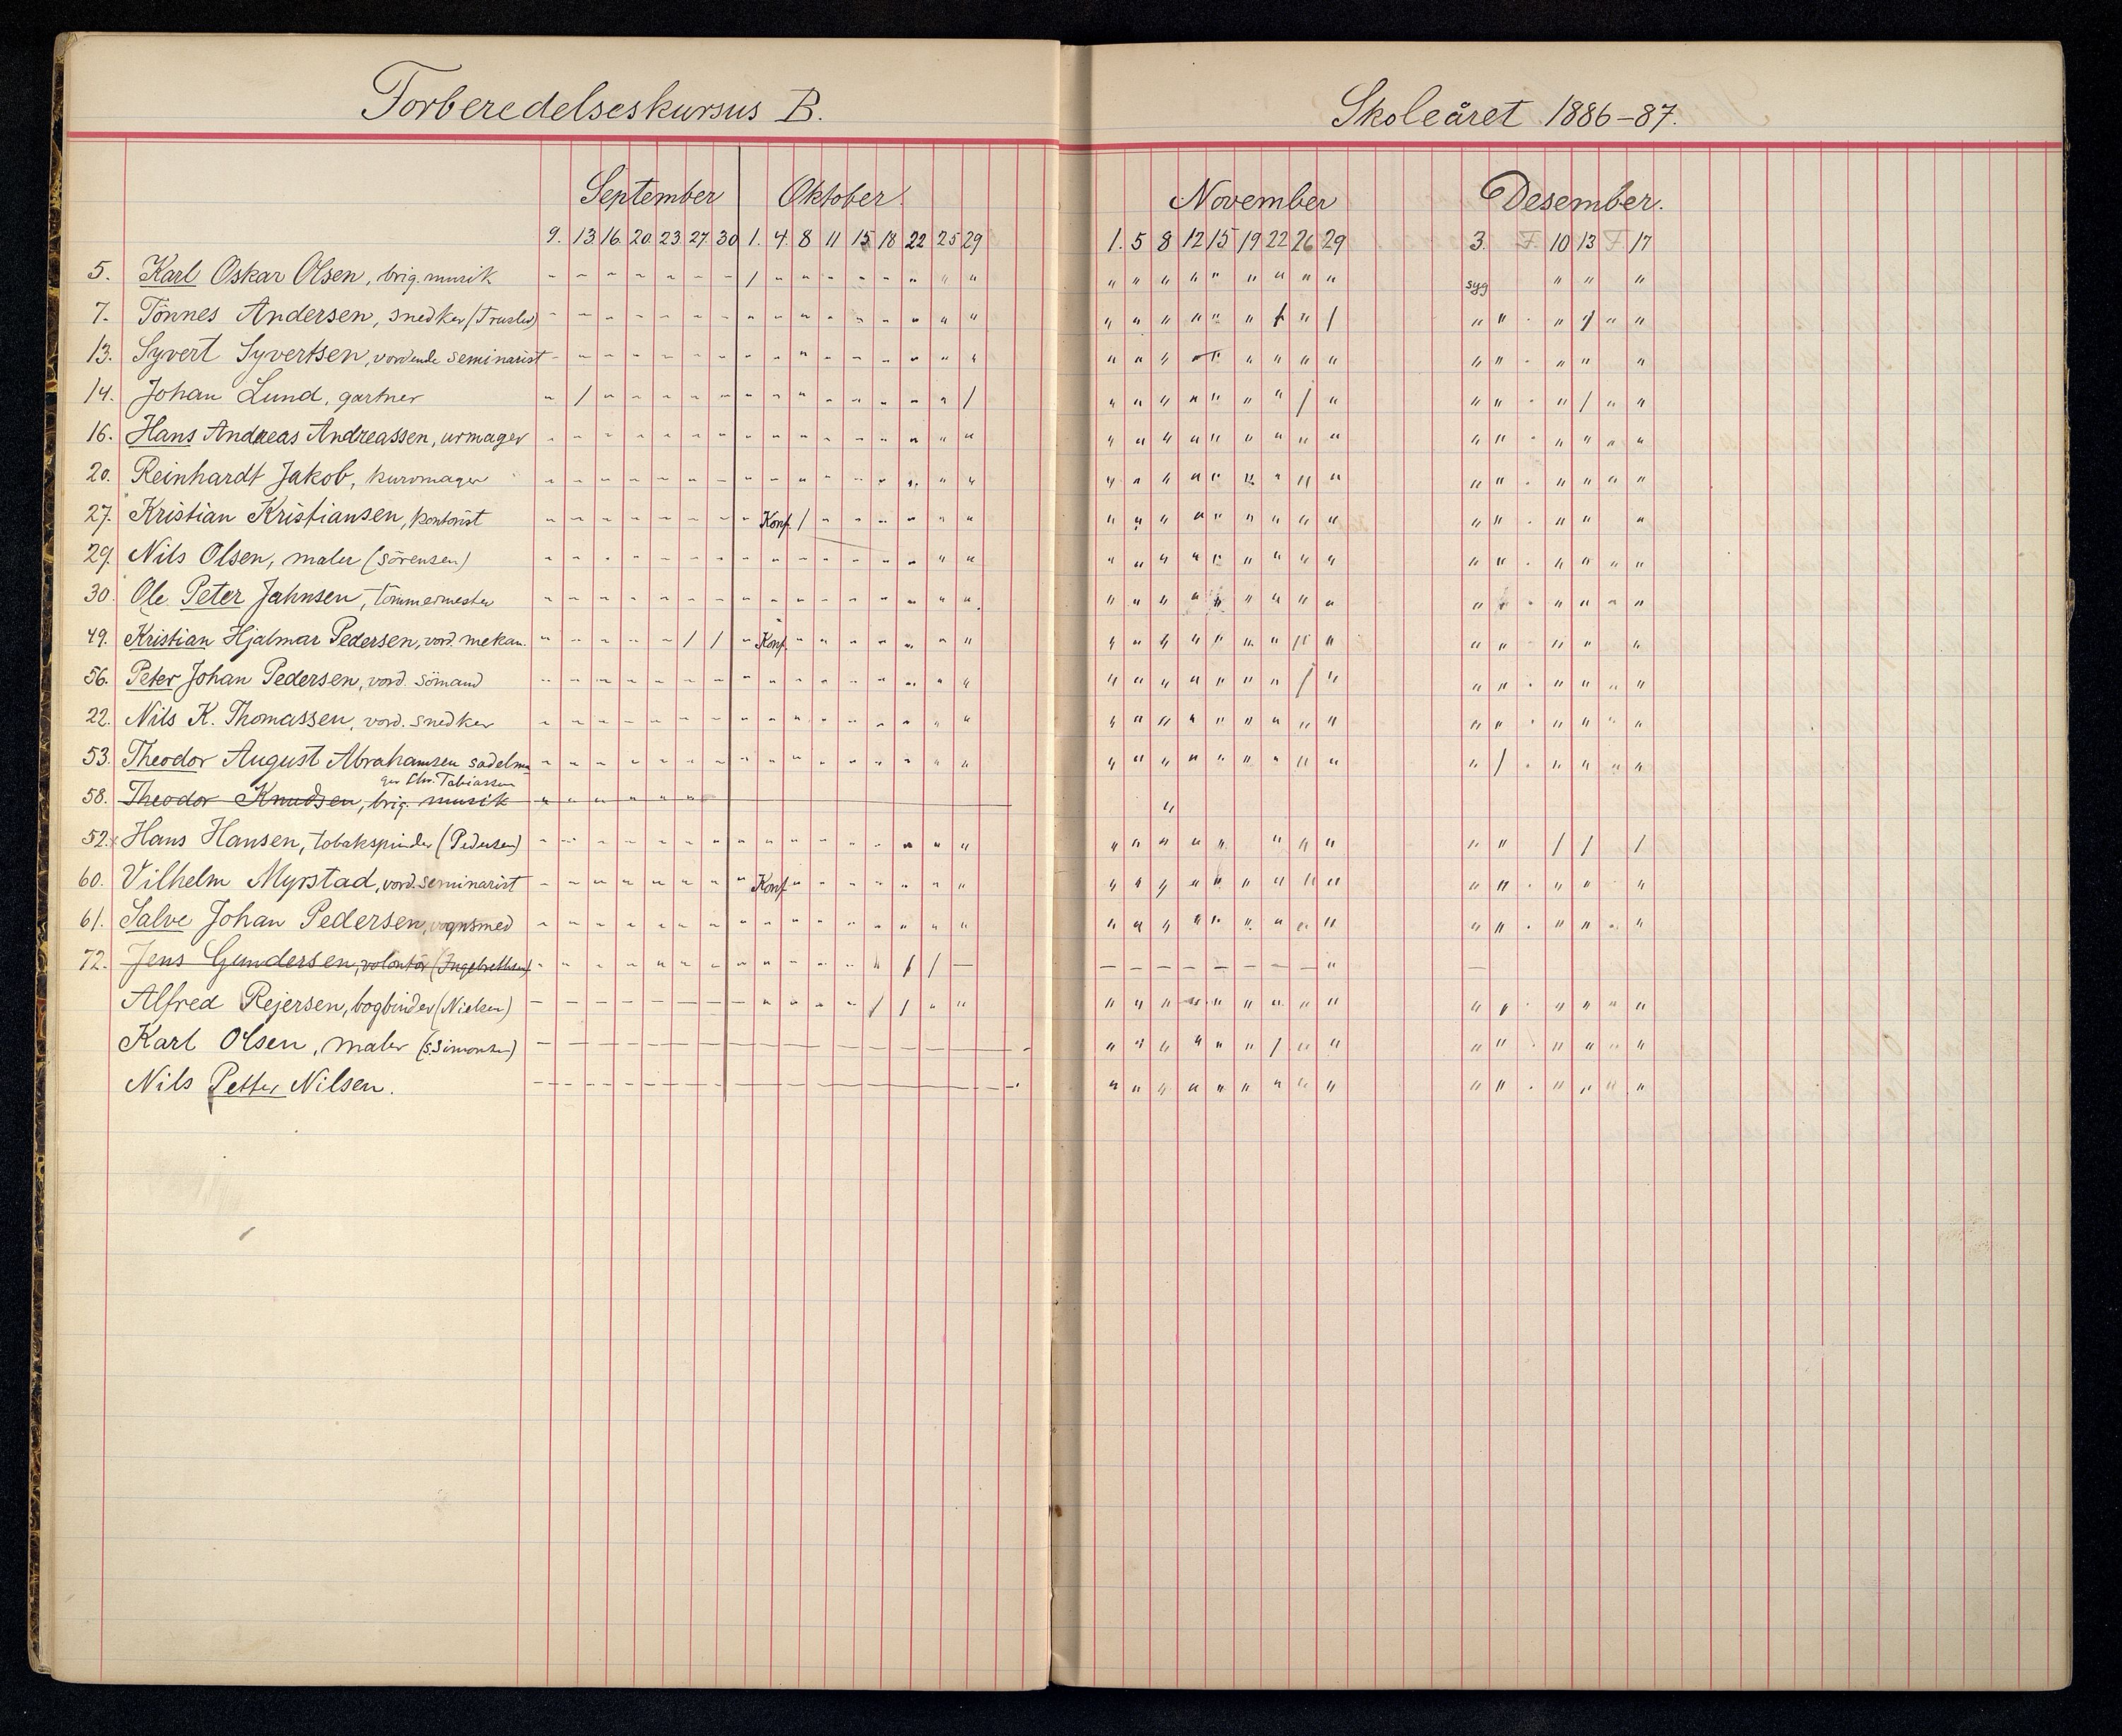 Forberedelseskursus B.
Skoleåret 1886-87.
September Oktober.
November Desember.
9. 13 16 20 23 27 30 1. 4 8 11 15 18 22 25 29
1. 5 8 12 15 19 22 26 29 3. F. 10 13 F. 17
5. Karl Oskar Olsen, brig. musik - - - - - - - / - - - - - - " " " " " " " " " " " syg " " "
7. Tönnes Andersen, snedker
13. Syvert Syvertsen, vordende seminarist
14. Johan Lund, gartner
16. Hans Andreas Andreassen, urmager
20. Reinhardt Jakob, kurvmager
27. Kristian Kristiansen, kontorist Konf. /
29. Nils Olsen, maler (Sörensen)
30. Ole Peter Jahnsen, tömmermester
49. Kristian Hjalmar Pedersen, vord. mekan. / / Konf.
56. Peter Johan Pedersen, vord. sömand
22. Nils K. Thomassen, vord. snedker
53. Theodor August Abrahamsen sadelm
Chr. Tabiassen
58. Theodor Knudsen, brig. musik
52. Hans Hansen, tobakspinder (Pedersen)
60. Vilhelm Myrstad, vord. seminarist Konf
61. Salve Johan Pedersen, vognsmed
72. Jens Gundersen, volontör (Ingebrethsen)
Alfred Rejersen, bogbinder (Nielsen)
Karl Olsen, maler (S. Simonsen)
Nils Petter Nilsen.